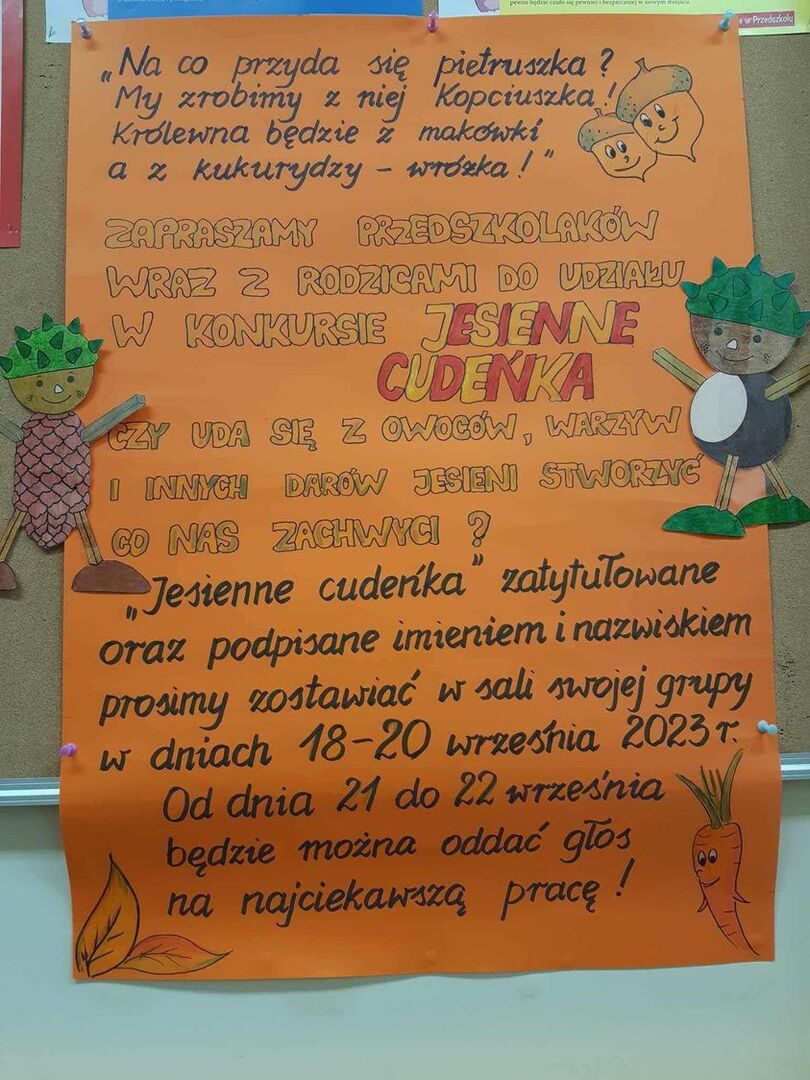 pewne będzie czuło się pewniej i bezpieczniej w nowym miejscu.
e w Przedszkolu
„Na co przyda się pietruszka?
My zrobimy z niej Kopciuszka!
Królewna będzie z makówki
a z kukurydzy – wróżka!"
ZAPRASZAMY PRZEDSZKOLAKÓW
WRAZ Z RODZICAMI DO UDZIAŁU
W KONKURSIE JESIENNE
CUDEŃKA
CZY UDA SIĘ Z OWOCÓW, WARZYW
I INNYCH DARÓW JESIENI STWORZYĆ
CO NAS ZACHWYCI ?
„Jesienne cudeńka" zatytułowane
oraz podpisane imieniem i nazwiskiem
prosimy zostawiać w sali swojej grupy
w dniach 18-20 września 2023 r.
Od dnia 21 do 22 września
będzie można oddać głos
na najciekawszą pracę!